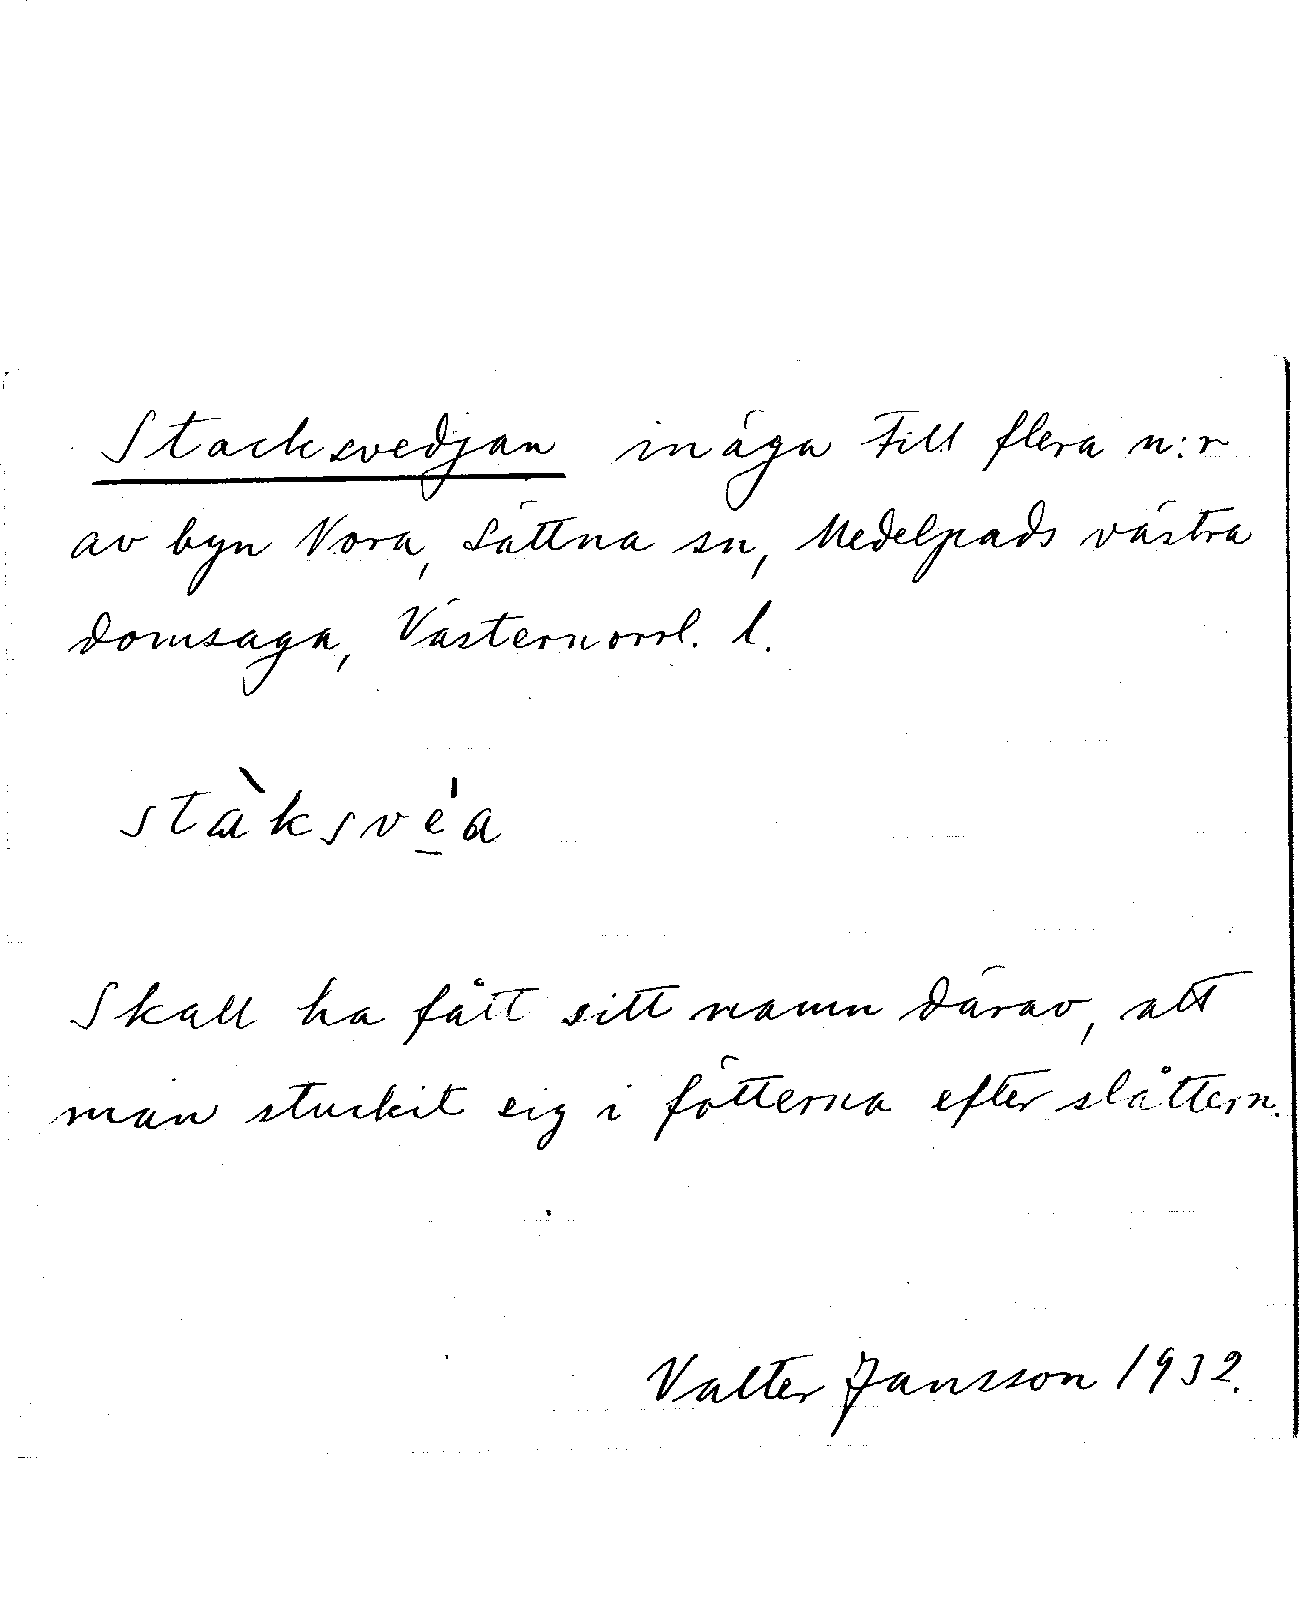 Stacksvedjan inäga till flera n:r
av byn Nora, Sättna sn, Medelpads västra
domsaga, Västernorrl. l.
stàksvé̠a
Skall ha fått sitt namn därav, att
man stuckit sig i fötterna efter slåttern.
Valter Jansson 1932.